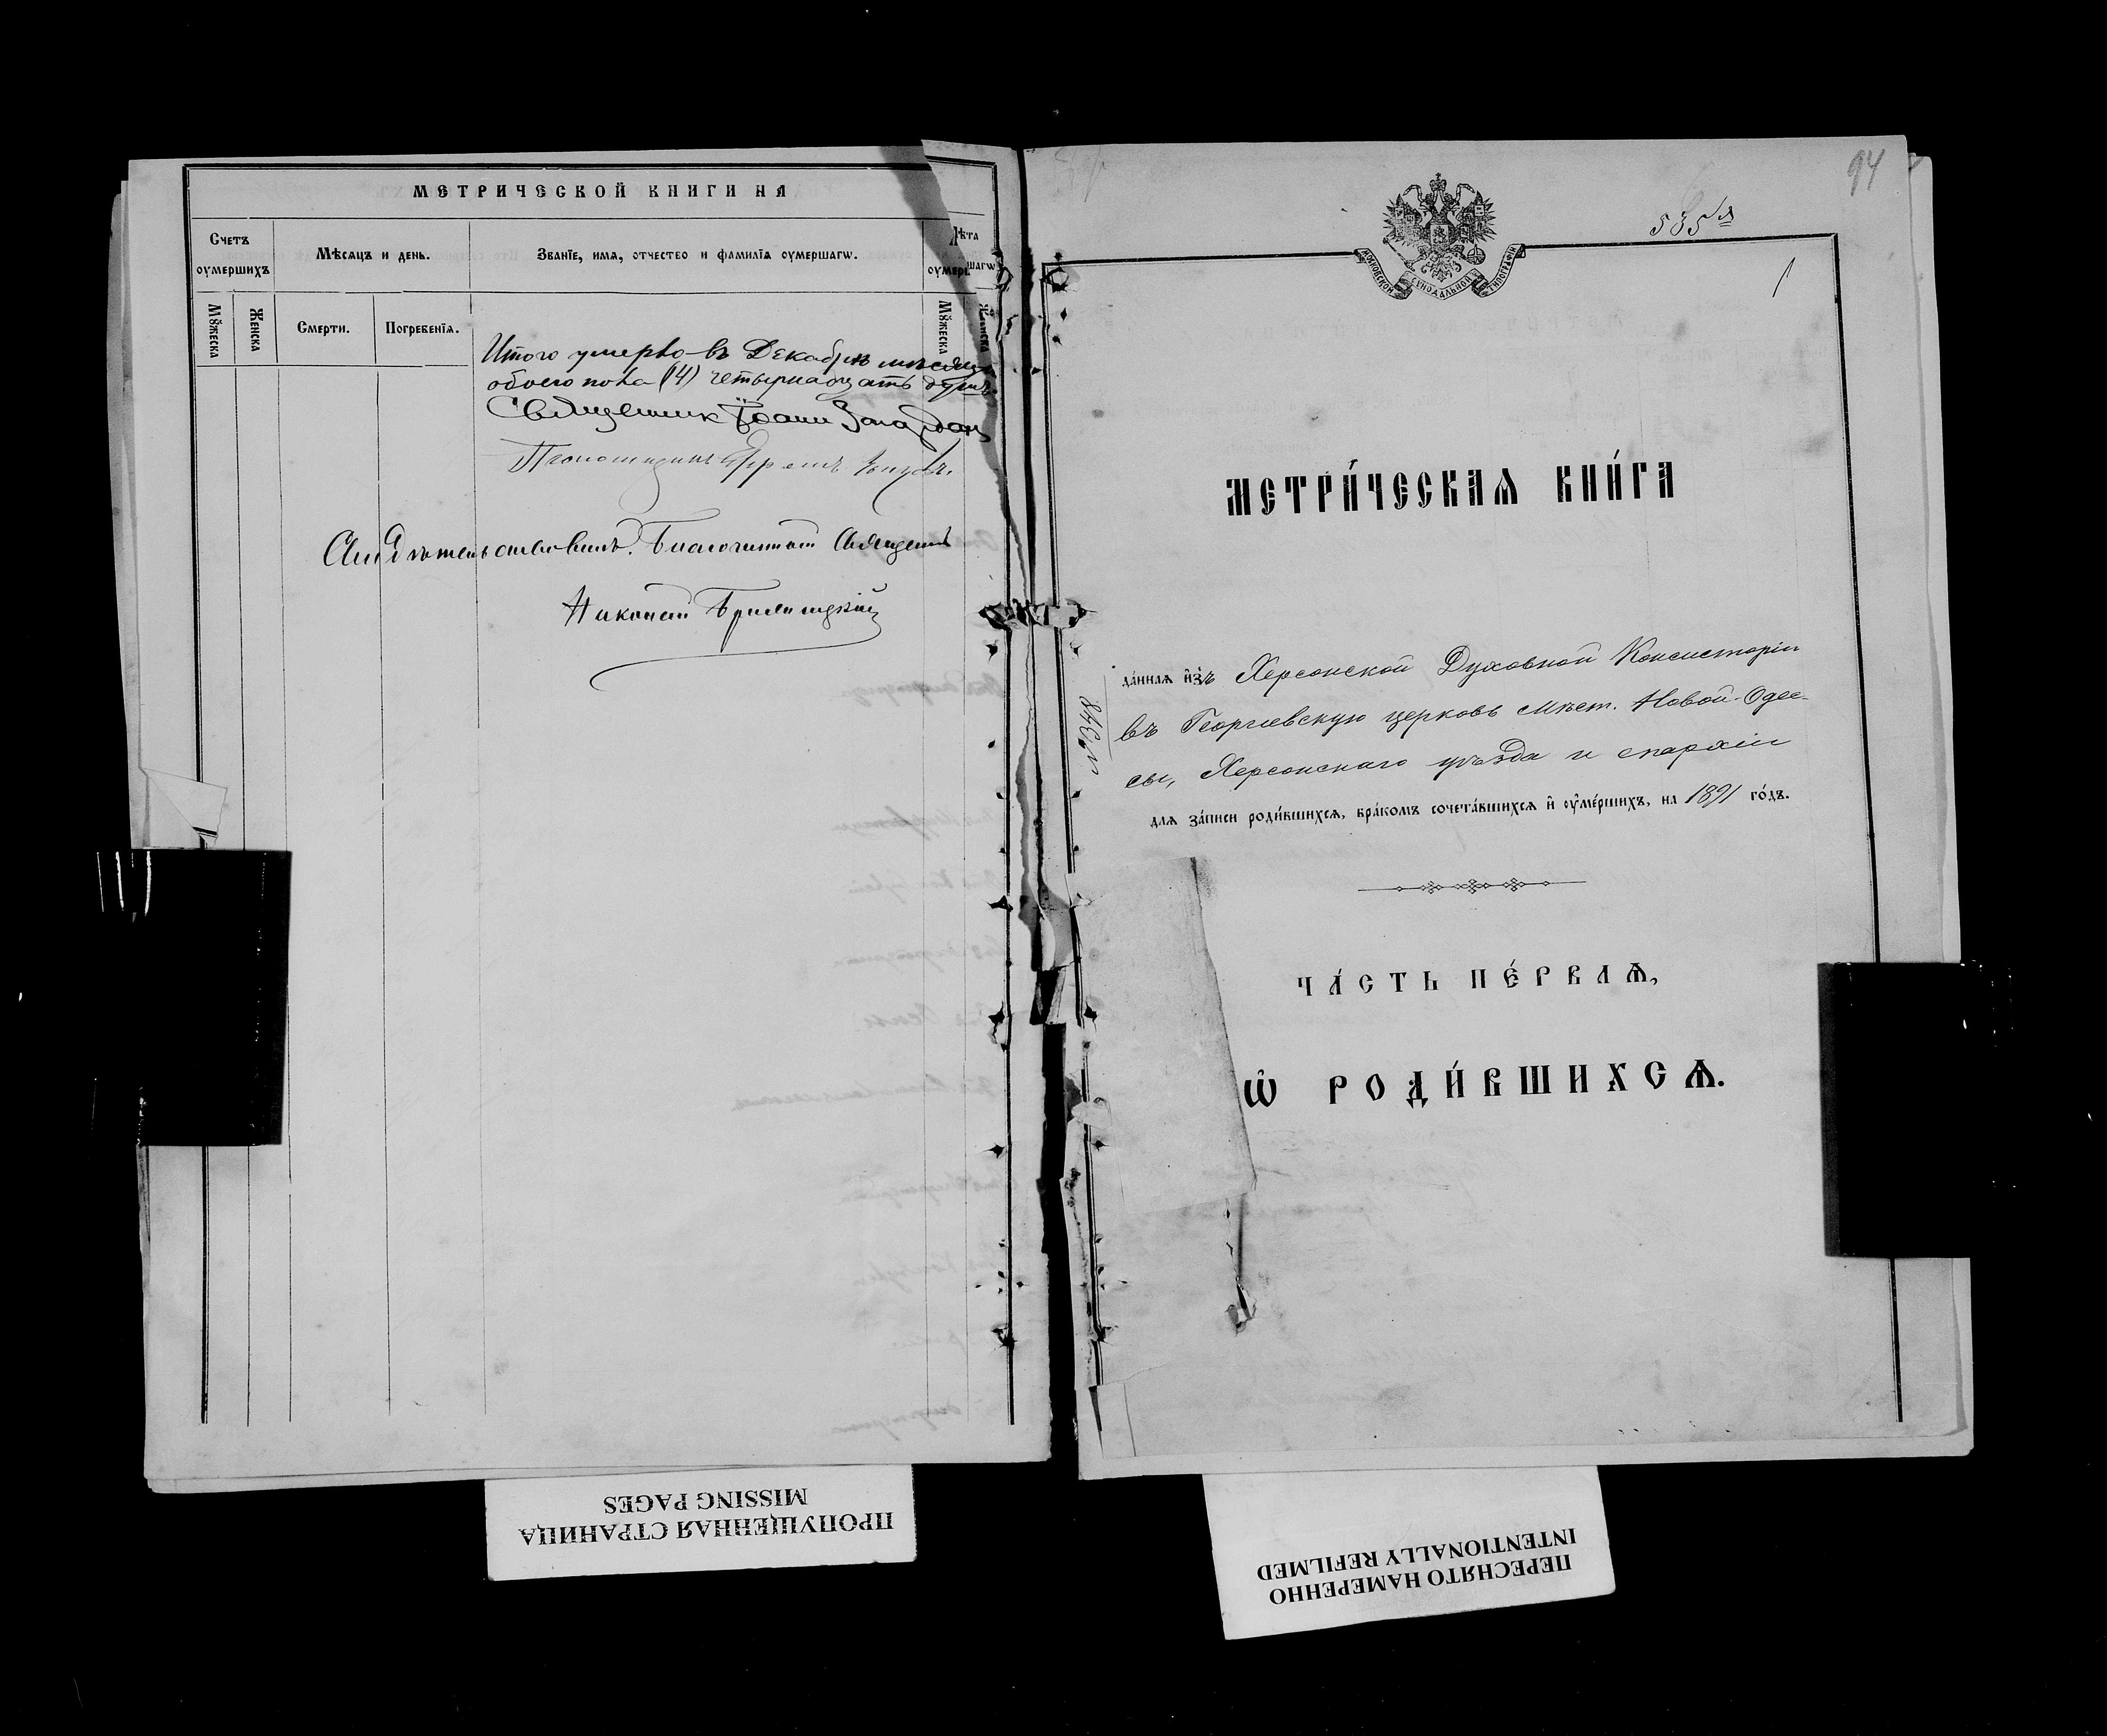 МЕТРИЧЕСКОЙ КНИГИ НА
Счетъ ѹмершихъ
Мѣсяцъ и день.
Званїе, имѧ, отчество и фамилїѧ ѹмершагѡ.
Лѣта ѹмершагѡ
Мꙋжеска
Женска
Смерти.
Погребенїѧ.
Мꙋжеска
Женска
Итого умерло въ Декабрѣ мѣсяцѣ
обоего пола (14) четырнадцать душъ
Священникъ Іоаннъ
Свидѣтельствовалъ: Благочинный Священникъ
Николай
94
585я
1
МОСКОВСКОЙ СѴНОДАЛЬНОЙ ТИПОГРАФІИ
МЕТРИ́ЧЕСКАѦ КНИ́ГА
да́ннаѧ и҆зъ Херсонской Духовной Консисторіи
въ Георгіевскую церковь мѣст. Новой-Одес-
сы, Херсонскаго уѣзда и епархіи
длѧ за́писи роди́вшихсѧ, бра́комъ сочета́вшихсѧ и҆ ѹ҆ме́ршихъ, на 1891 го́дъ.
№ 348
ЧА́СТЬ ПЕ́РВАѦ,
Ѡ҆ РОДИ́ВШИХСѦ.
ПРОПУЩЕННАЯ СТРАНИЦА
MISSING PAGES
ПЕРЕСНЯТО НАМЕРЕННО
INTENTIONALLY REFILMED